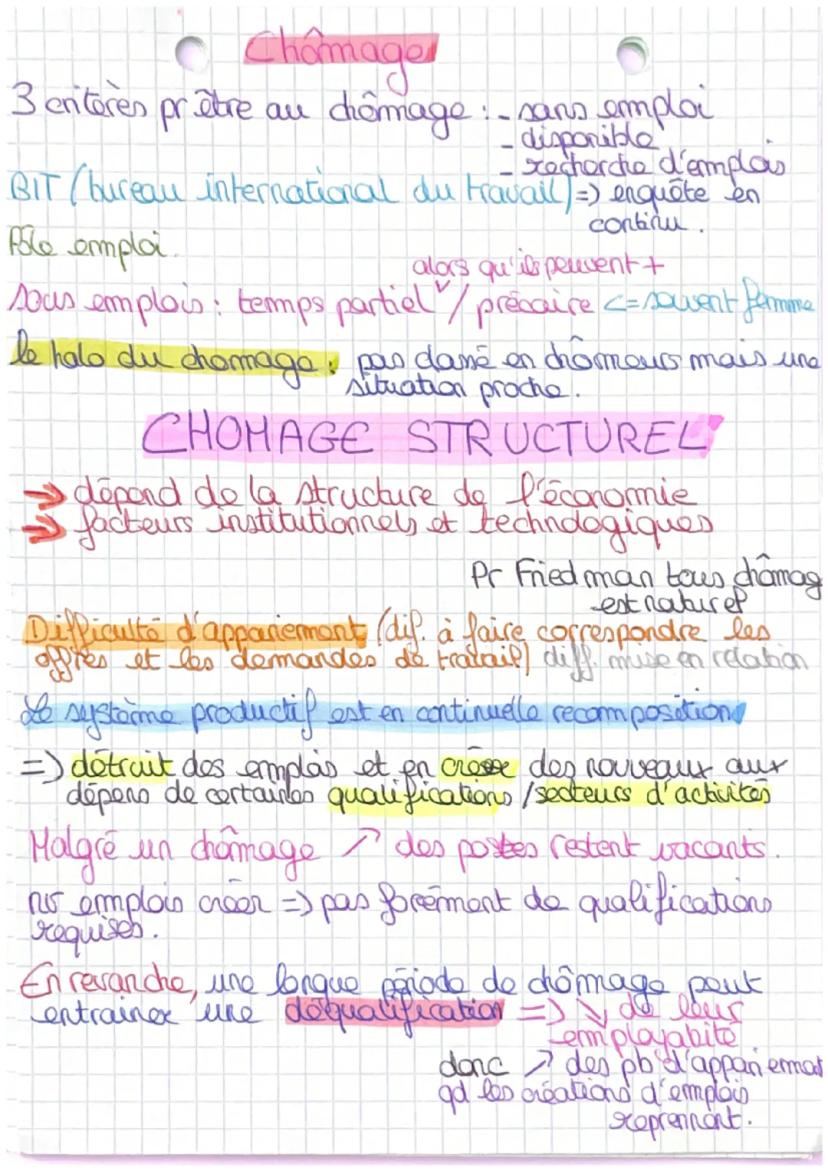 Chômage
3 critères pr être au chômage : - sans emploi
- disponible
- recherche d'emplois
BIT (bureau international du travail) => enquête en
continu.
Pôle emploi.
alors qu'ils peuvent +
sous emplois : temps partiel / précaire <= souvent femme
le halo du chomage : pas classé en chômeurs mais une
situation proche.
CHOMAGE STRUCTUREL
→ dépend de la structure de l'économie
→ facteurs institutionnels et technologiques
Pr Friedman tous chômag
est naturel
Difficulté d'appariement (dif. à faire correspondre les
offres et les demandes de travail) diff. mise en relation
Le système productif est en continuelle recomposition
=> détruit des emplois et en crée des nouveaux aux
dépens de certaines qualifications / secteurs d'activités
Malgré un chômage ↗ des postes restent vacants.
nv emplois créer => pas forément de qualifications
requises.
En revanche, une longue période de chômage peut
entrainer une déqualification => ↘ de leur
employabité
donc ↗ des pb d'appariemat
qd les créations d'emplois
reprennent.